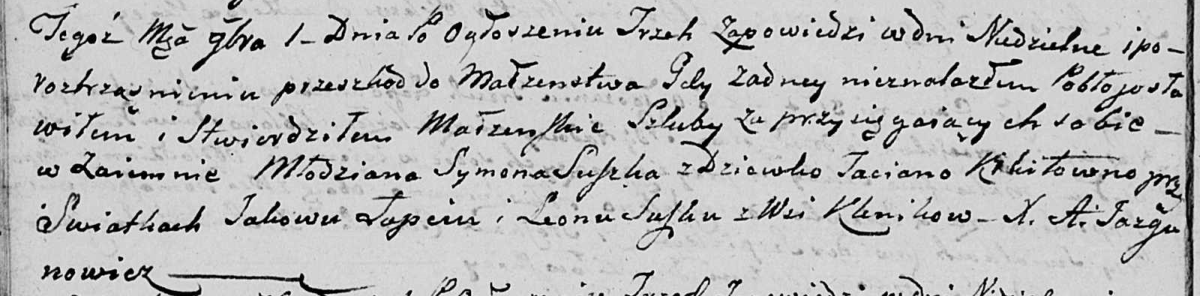 Tegoż Mca 9bra 1 – Dnia Po Ogłoszeniu Trzech Zapowiedzi w dni Niedzielne i po–
roztrząśnieniu przeszkod do Małzenstwa Gdy zadney nieznalazłem Pobłojosła
wiłem i Stwierdziłem Małzenskie Szluby Za przysięgaiących sobie –
w Zaiemnie Młodziana Symona Suszka z Dziewko Taciano Kikitowno prz
Swiatkach Jakowu Łapciu i Leonu Suszku z Wsi Klenikow – X. A. Jazgu
nowicz